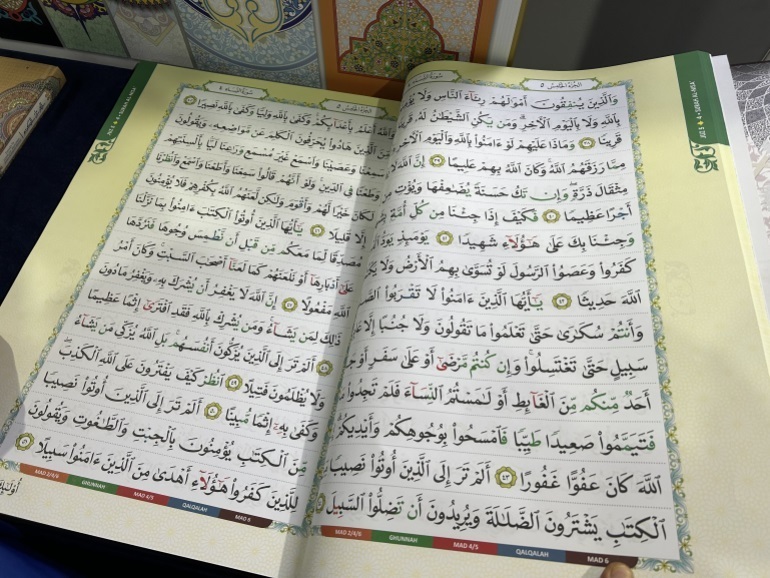 الجزء الخامس ٥
سورة النساء
JUZ 5 4 • SURAH AL-NISA'
وَالَّذِينَ يُنفِقُونَ أَمْوَٰلَهُمْ رِئَآءَ النَّاسِ وَلَا
بِاللَّهِ وَلَا بِالْيَوْمِ الْآخِرِ ۗ وَمَن يَكُنِ الشَّيْطَٰنُ لَهُ
قَرِينًا ٣٨ وَمَاذَا عَلَيْهِمْ لَوْ ءَامَنُوا بِاللَّهِ وَالْيَوْمِ الْآخِرِ
مِمَّا رَزَقَهُمُ اللَّهُ ۚ وَكَانَ اللَّهُ بِهِمْ عَلِيمًا ٣٩ إِنَّ اللَّهَ لَا
مِثْقَالَ ذَرَّةٍ ۖ وَإِن تَكُ حَسَنَةً يُضَٰعِفْهَا وَيُؤْتِ
أَجْرًا عَظِيمًا ٤٠ فَكَيْفَ إِذَا جِئْنَا مِن كُلِّ أُمَّةٍ
وَجِئْنَا بِكَ عَلَىٰ هَٰٓؤُلَآءِ شَهِيدًا ٤١ يَوْمَئِذٍ يَوَدُّ
كَفَرُوا وَعَصَوُا الرَّسُولَ لَوْ تُسَوَّىٰ بِهِمُ الْأَرْضُ وَلَا
اللَّهَ حَدِيثًا ٤٢ يَٰٓأَيُّهَا الَّذِينَ ءَامَنُوا لَا تَقْرَبُوا
وَأَنتُمْ سُكَٰرَىٰ حَتَّىٰ تَعْلَمُوا مَا تَقُولُونَ وَلَا جُنُبًا إِلَّا
سَبِيلٍ حَتَّىٰ تَغْتَسِلُوا ۚ وَإِن كُنتُم مَّرْضَىٰٓ أَوْ عَلَىٰ سَفَرٍ أَوْ
أَحَدٌ مِّنكُم مِّنَ الْغَآئِطِ أَوْ لَٰمَسْتُمُ النِّسَآءَ فَلَمْ تَجِدُوا
فَتَيَمَّمُوا صَعِيدًا طَيِّبًا فَامْسَحُوا بِوُجُوهِكُمْ وَأَيْدِيكُمْ
اللَّهَ كَانَ عَفُوًّا غَفُورًا ٤٣ أَلَمْ تَرَ إِلَى الَّذِينَ أُوتُوا نَصِيبًا
الْكِتَٰبِ يَشْتَرُونَ الضَّلَٰلَةَ وَيُرِيدُونَ أَن تَضِلُّوا السَّبِيلَ
MAD 2/4/6 GHUNNAH MAD 4/5 QALQALAH MAD 6
الجزء الخامس ٥
سورة النساء ٤
JUZ 5 4 • SURAH AL-NISA'
وَاللَّهُ أَعْلَمُ بِأَعْدَآئِكُمْ ۚ وَكَفَىٰ بِاللَّهِ وَلِيًّا وَكَفَىٰ بِاللَّهِ نَصِيرًا ٤٥
مِّنَ الَّذِينَ هَادُوا يُحَرِّفُونَ الْكَلِمَ عَن مَّوَاضِعِهِ وَيَقُولُونَ
سَمِعْنَا وَعَصَيْنَا وَاسْمَعْ غَيْرَ مُسْمَعٍ وَرَٰعِنَا لَيًّا بِأَلْسِنَتِهِمْ
وَطَعْنًا فِي الدِّينِ ۚ وَلَوْ أَنَّهُمْ قَالُوا سَمِعْنَا وَأَطَعْنَا وَاسْمَعْ وَانظُرْنَا
لَكَانَ خَيْرًا لَّهُمْ وَأَقْوَمَ وَلَٰكِن لَّعَنَهُمُ اللَّهُ بِكُفْرِهِمْ فَلَا يُؤْمِنُونَ
إِلَّا قَلِيلًا ٤٦ يَٰٓأَيُّهَا الَّذِينَ أُوتُوا الْكِتَٰبَ ءَامِنُوا بِمَا نَزَّلْنَا
مُصَدِّقًا لِّمَا مَعَكُم مِّن قَبْلِ أَن نَّطْمِسَ وُجُوهًا فَنَرُدَّهَا
عَلَىٰٓ أَدْبَارِهَآ أَوْ نَلْعَنَهُمْ كَمَا لَعَنَّآ أَصْحَٰبَ السَّبْتِ ۚ وَكَانَ أَمْرُ
اللَّهِ مَفْعُولًا ٤٧ إِنَّ اللَّهَ لَا يَغْفِرُ أَن يُشْرَكَ بِهِ وَيَغْفِرُ مَا دُونَ
ذَٰلِكَ لِمَن يَشَآءُ ۚ وَمَن يُشْرِكْ بِاللَّهِ فَقَدِ افْتَرَىٰٓ إِثْمًا عَظِيمًا
٤٨ أَلَمْ تَرَ إِلَى الَّذِينَ يُزَكُّونَ أَنفُسَهُم ۚ بَلِ اللَّهُ يُزَكِّي مَن يَشَآءُ
وَلَا يُظْلَمُونَ فَتِيلًا ٤٩ انظُرْ كَيْفَ يَفْتَرُونَ عَلَى اللَّهِ الْكَذِبَ ۖ
وَكَفَىٰ بِهِ إِثْمًا مُّبِينًا ٥٠ أَلَمْ تَرَ إِلَى الَّذِينَ أُوتُوا نَصِيبًا
مِّنَ الْكِتَٰبِ يُؤْمِنُونَ بِالْجِبْتِ وَالطَّٰغُوتِ وَيَقُولُونَ
لِلَّذِينَ كَفَرُوا هَٰٓؤُلَآءِ أَهْدَىٰ مِنَ الَّذِينَ ءَامَنُوا سَبِيلًا ٥١
MAD 2/4/6 GHUNNAH MAD 4/5 QALQALAH MAD 6